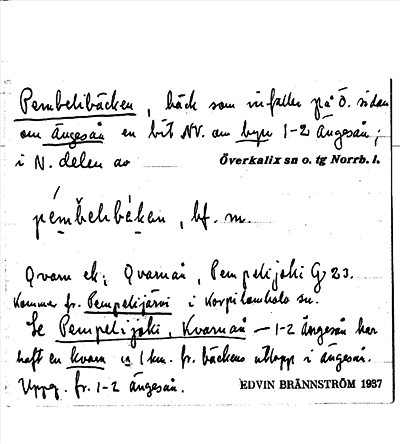 Pembelibäcken, bäck som infaller på Ö. sidan
om Ängesån en bit NV. om byn 1-2 Ängesån;
i N. delen av Överkalix sn o. tg Norrb. l.
pémbelibäken, bf. m.
Qvarn ek; Qvarnån, Pempelijoki G 23.
Kommer fr. Pempelijärvi i Korpilombolo sn.
Se Pempelijoki, Kvarnån – 1-2 Ängesån har
haft en kvarn 1 km. fr. bäckens utlopp i Ängesån.
Uppg. fr. 1-2 Ängesån. EDVIN BRÄNNSTRÖM 1937